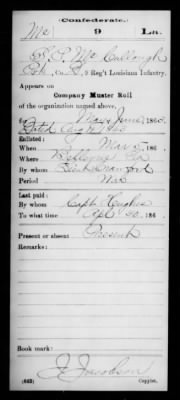 Confederate.
Mc 9 La.
McCullough
Pvt, Co., 9 Reg't Louisiana Infantry.
Appears on
Company Muster Roll
of the organization named above,
for May & June, 1863.
Dated Aug 1863
Enlisted:
When Mar 5, 186
Where
By whom
Period War
Last paid:
By whom Capt. Hughes
To what time Apl 30, 186
Present or absent Present
Remarks:
Book mark:
J. Jacobson
(642) Copyist.